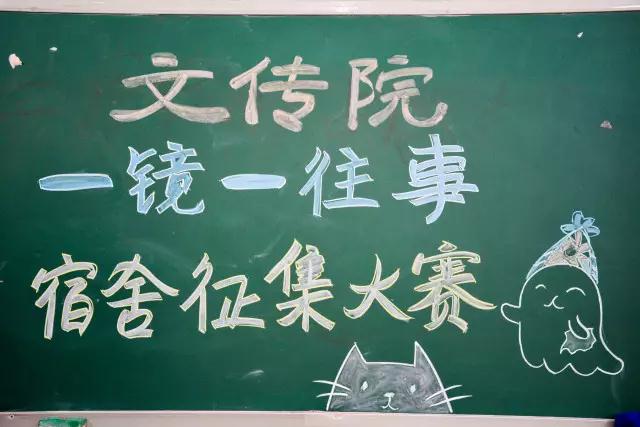 文传院
一镜一往事
宿舍征集大赛